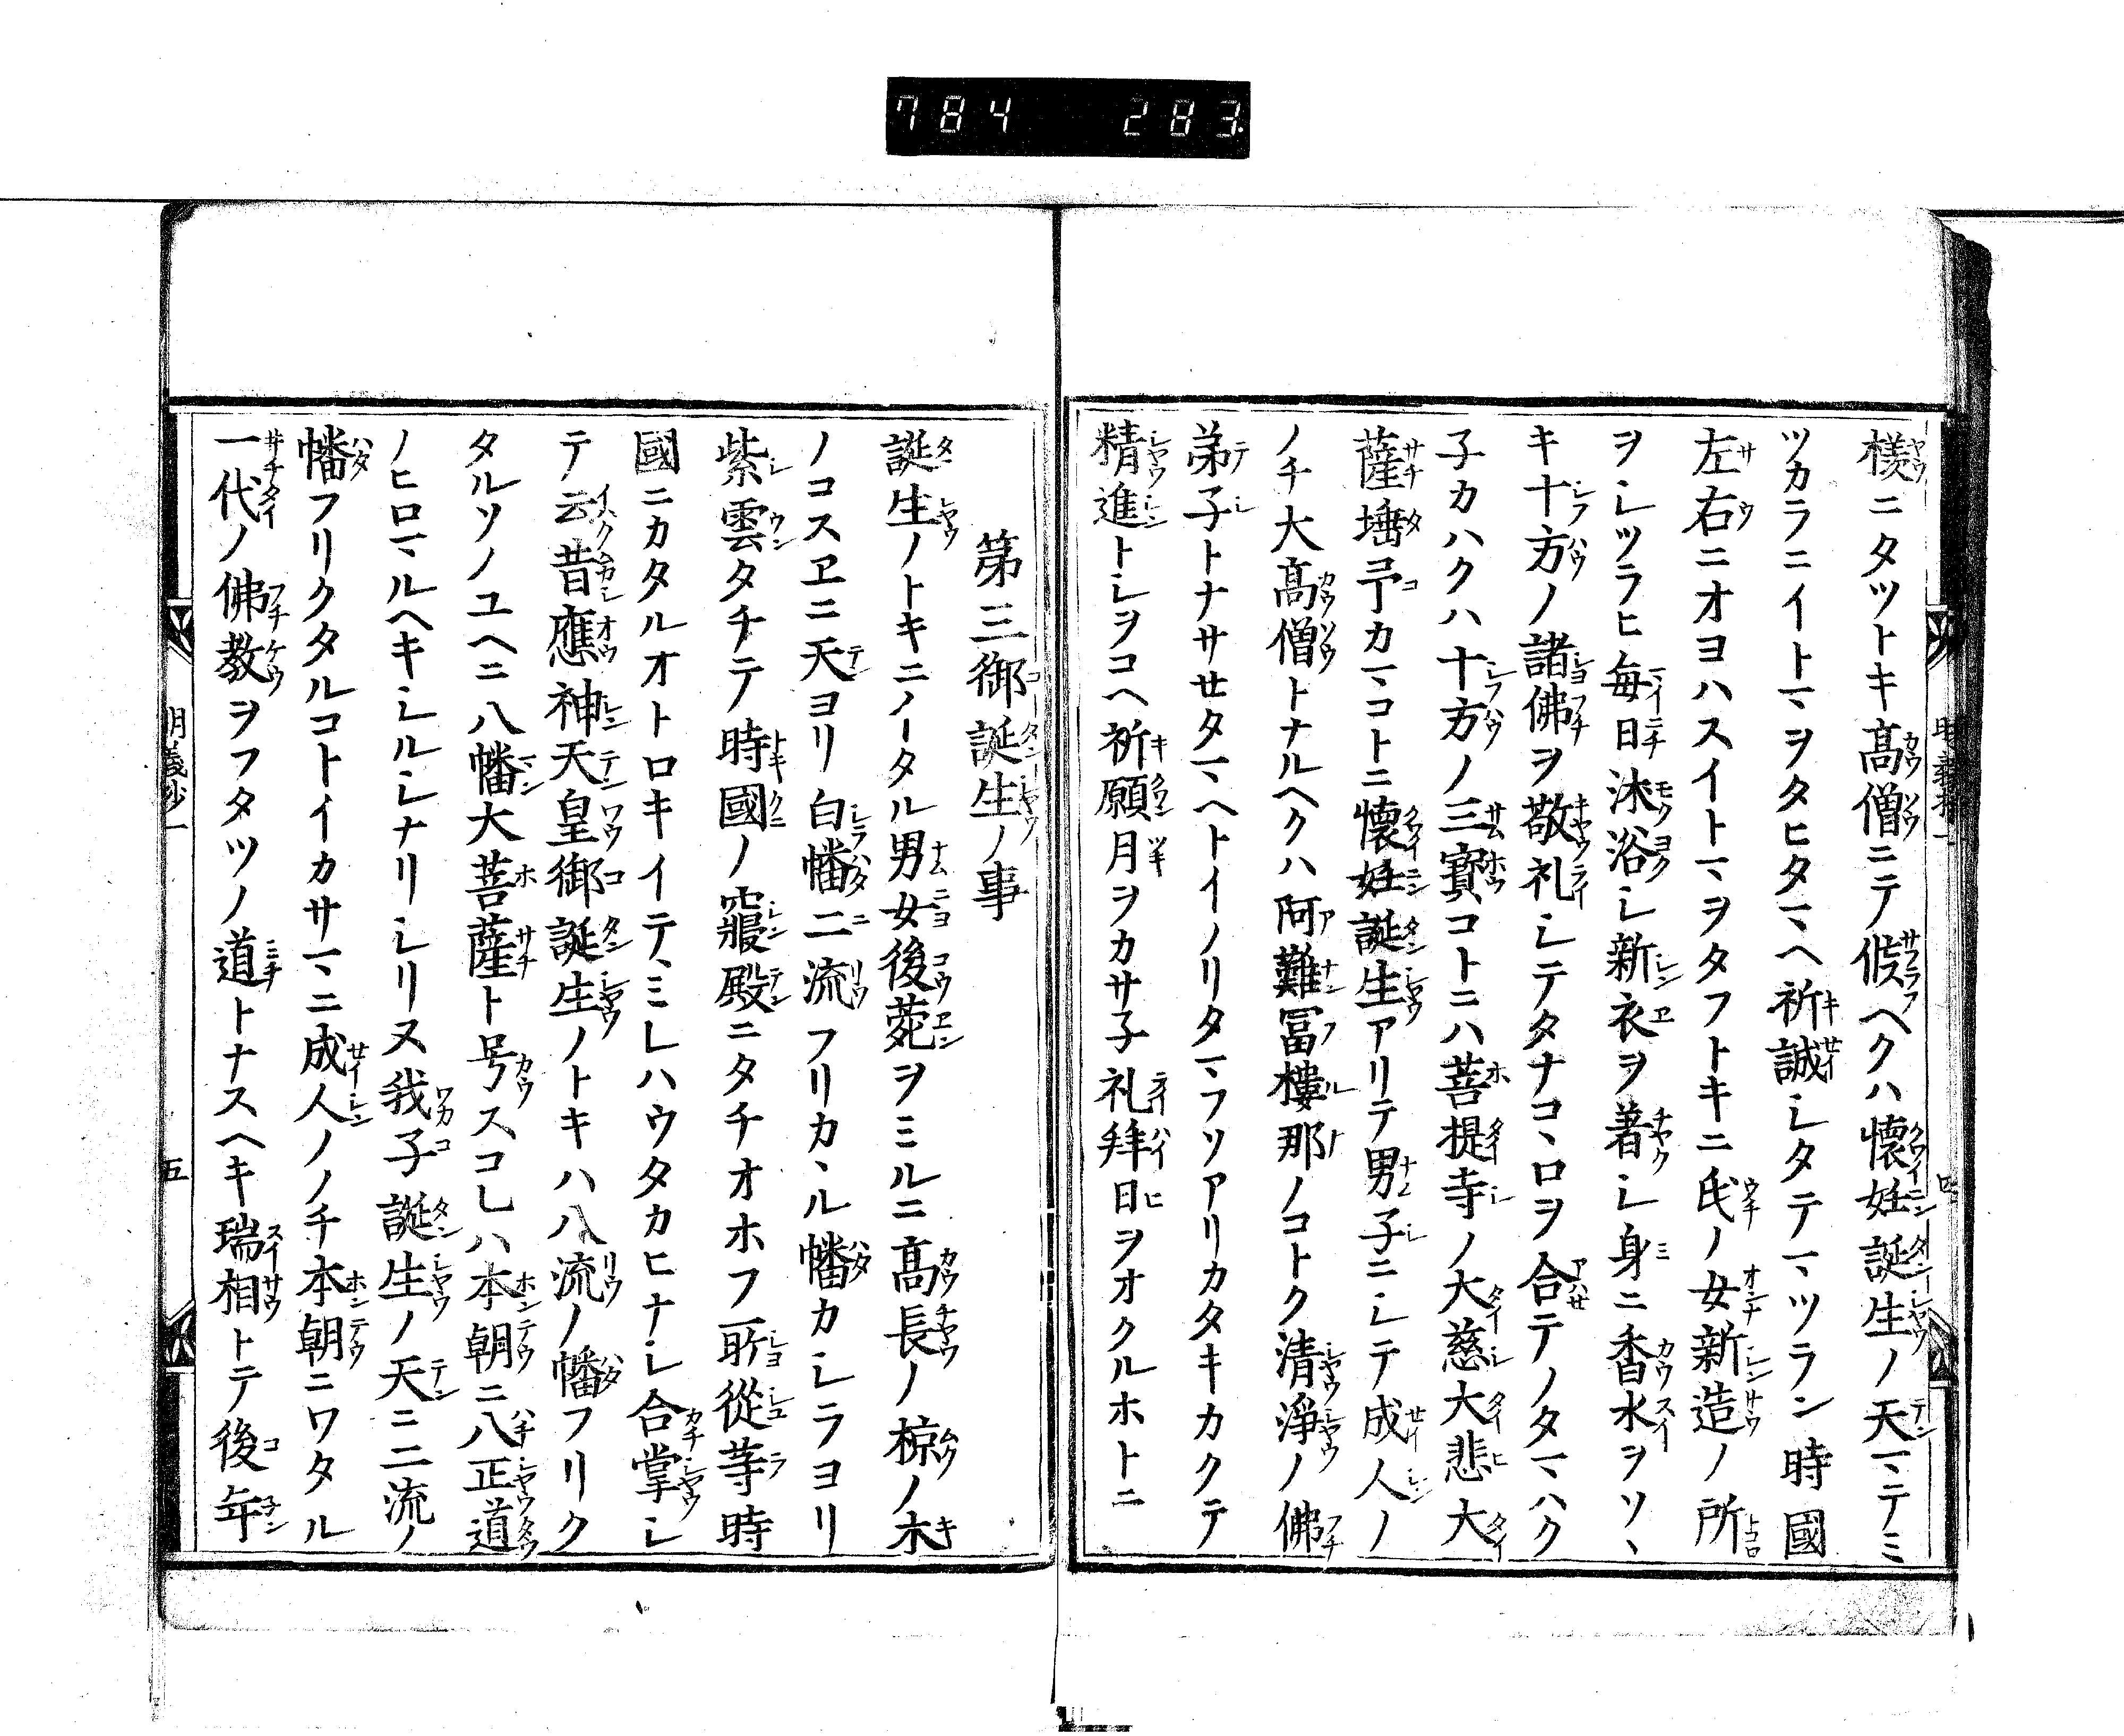 784 283
樣ニタツトキ高僧ニテ候ヘクハ懷妊誕生ノ天マ、ニテミ
ツカラニイトマ、ヲタヒタマ、ヘ祈誠シタテマ、ツラン時國
左右ニオヨハスイトマ、ヲタフトキニ氏ノ女新造ノ所
ヲシツラヒ毎日沐浴シ新衣ヲ著シ身ニ香水ヲソ、
キ十方ノ諸佛ヲ敬礼シテタナコ、ロヲ合テノタマ、ハク
子カハクハ十方ノ三寳コトニハ菩提寺ノ大慈大悲大
薩埵予カマ、コトニ懷妊誕生アリテ男子ニシテ成人ノ
ノチ大高僧トナルヘクハ阿難冨樓那ノコトク清淨ノ佛
弟子トナサセタマ、ヘトイノリタマ、フソアリカタキカクテ
精進トシヲコヘ祈願月ヲカサ子礼拜日ヲオクルホトニ
第三御誕生ノ事
誕生ノトキニノータル男女後菀ヲミルニ高長ノ椋ノ木
ノコスヱニ天ヨリ白幡二流フリカ、ル幡カシラヨリ
紫雲タチテ時國ノ寢殿ニタチオホフ所從等時
國ニカタルオトロキイテ、ミレハウタカヒナシ合掌シ
テ云昔應神天皇御誕生ノトキハ八流ノ幡フリク
タルソノユヘニ八幡大菩薩ト号スコレハ本朝ニ八正道
ノヒロマ、ルヘキシルシナリシリヌ我子誕生ノ天ニ二流ノ
幡フリクタルコトイカサマ、ニ成人ノノチ本朝ニワタル
一代ノ佛教ヲフタツノ道トナスヘキ瑞相トテ後年
明義抄一 五